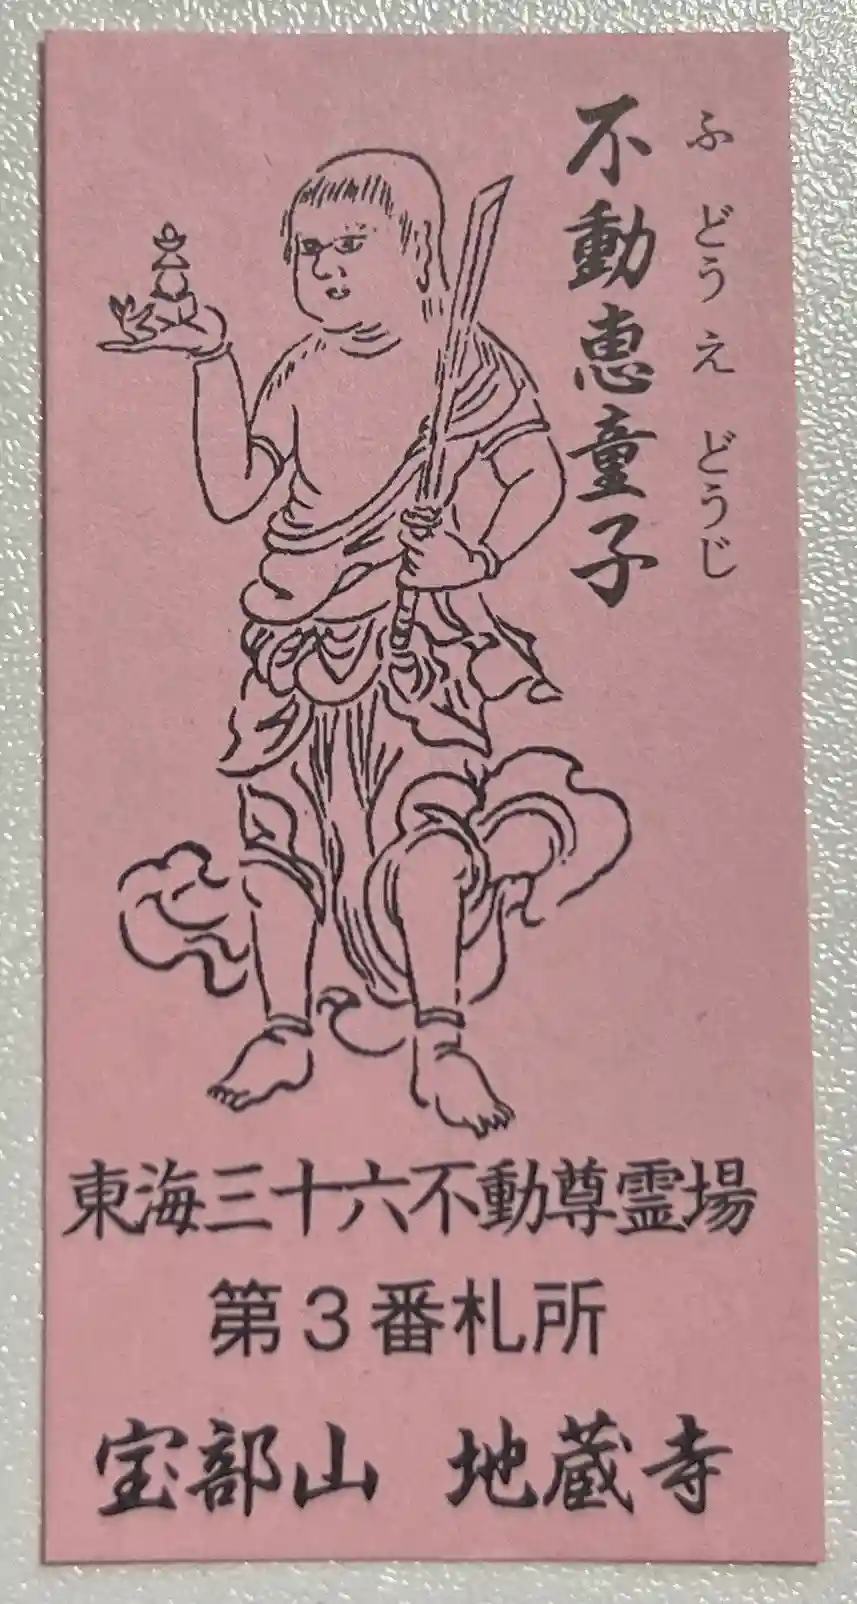 ふどうえどうじ
不動恵童子
東海三十六不動尊霊場
第3番札所
宝部山 地蔵寺